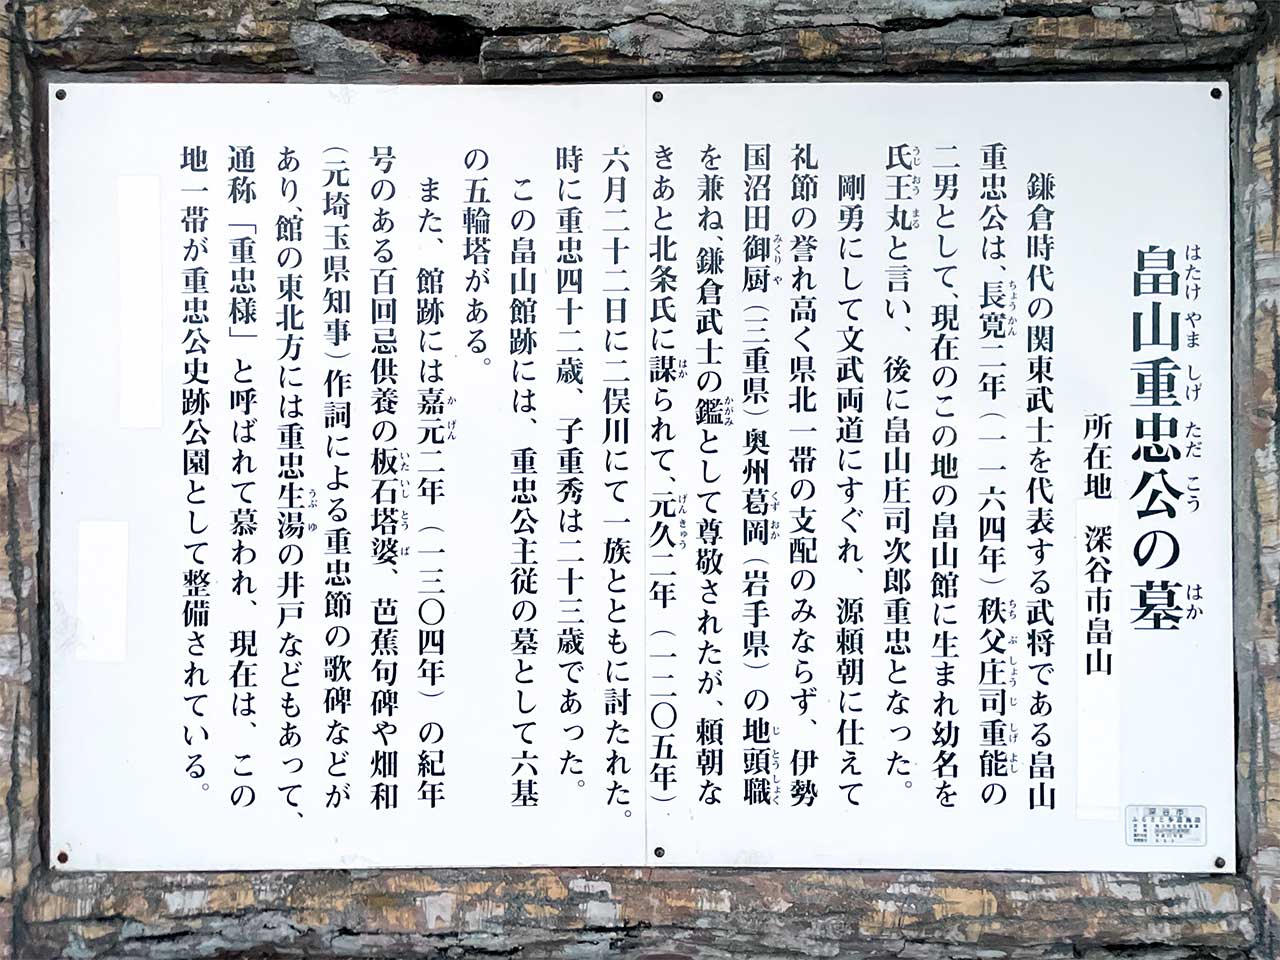 畠山重忠公の墓
はたけ やま しげ ただ こう はか
所在地 深谷市畠山
鎌倉時代の関東武士を代表する武将である畠山
重忠公は、長寛二年（一一六四年）秩父庄司重能の
ちょう かん ちち ぶ しょう じ しげ よし
二男として、現在のこの地の畠山館に生まれ幼名を
氏王丸と言い、後に畠山庄司次郎重忠となった。
うじ おう まる
剛勇にして文武両道にすぐれ、源頼朝に仕えて
礼節の誉れ高く県北一帯の支配のみならず、伊勢
国沼田御厨（三重県）奥州葛岡（岩手県）の地頭職
みくり や くず おか じ とうしょく
を兼ね、鎌倉武士の鑑として尊敬されたが、頼朝な
かがみ
きあと北条氏に謀られて、元久二年（一二〇五年）
はか げんきゅう
六月二十二日に二俣川にて一族とともに討たれた。
時に重忠四十二歳、子重秀は二十三歳であった。
この畠山館跡には、重忠公主従の墓として六基
の五輪塔がある。
また、館跡には嘉元二年（一三〇四年）の紀年
か げん
号のある百回忌供養の板石塔婆、芭蕉句碑や畑和
いた いし とう ば
（元埼玉県知事）作詞による重忠節の歌碑などが
あり、館の東北方には重忠生湯の井戸などもあって、
うぶ ゆ
通称「重忠様」と呼ばれて慕われ、現在は、この
地一帯が重忠公史跡公園として整備されている。
深谷市